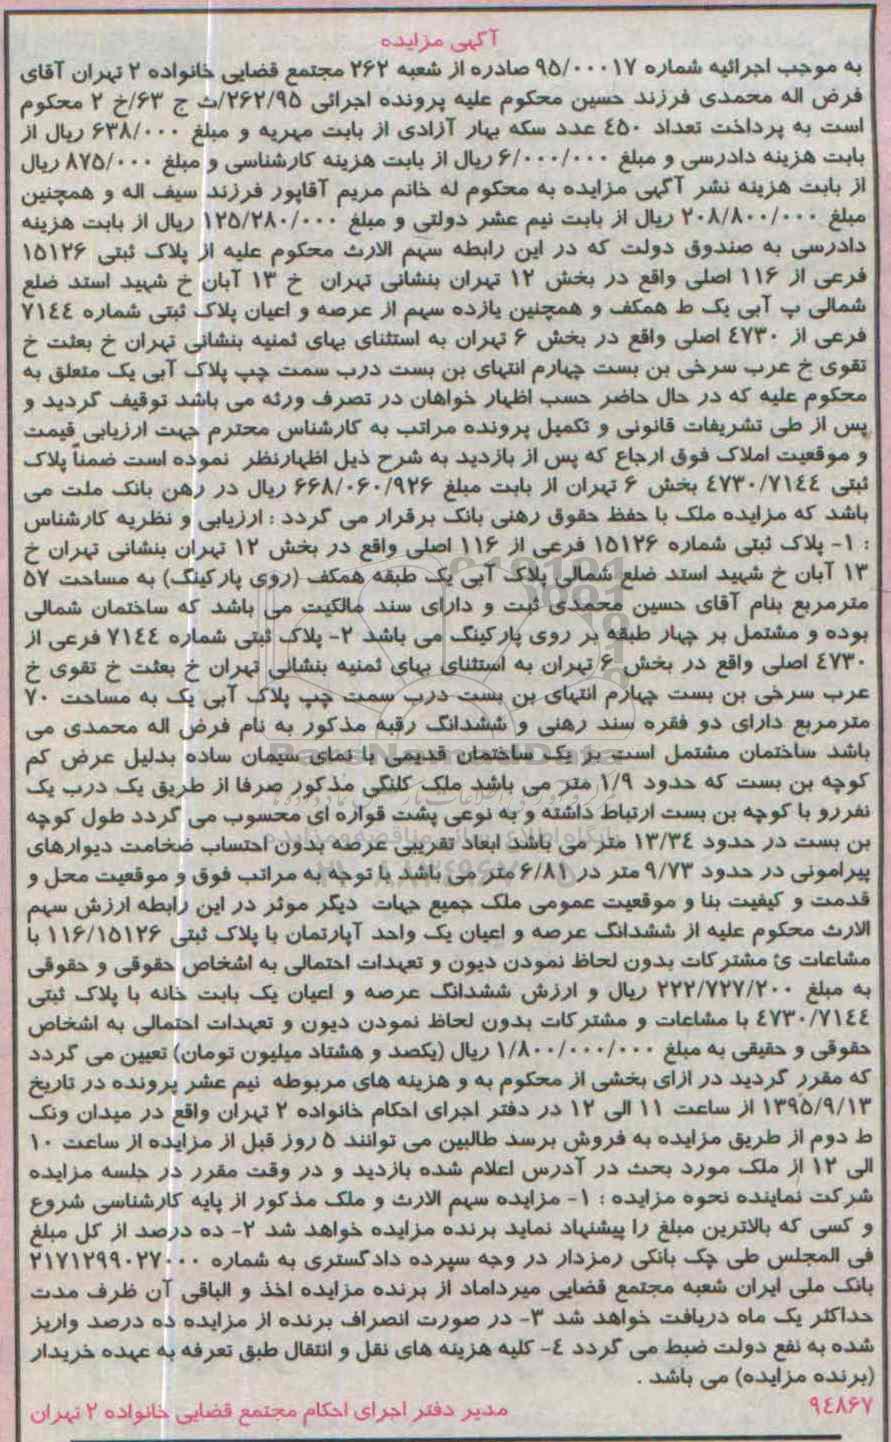 آگهی مزایده
به موجب اجرائیه شماره ۹۵/۰۰۰۱۷ صادره از شعبه ۲۶۲ مجتمع قضایی خانواده ۲ تهران آقای
فرض اله محمدی فرزند حسین محکوم علیه پرونده اجرائی ۲۶۲/۹۵/ث ج ۶۳/خ ۲ محکوم
است به پرداخت تعداد ۴۵۰ عدد سکه بهار آزادی از بابت مهریه و مبلغ ۶۳۸/۰۰۰ ریال از
بابت هزینه دادرسی و مبلغ ۶/۰۰۰/۰۰۰ ریال از بابت هزینه کارشناسی و مبلغ ۸۷۵/۰۰۰ ریال
از بابت هزینه نشر آگهی مزایده به محکوم له خانم مریم آقاپور فرزند سیف اله و همچنین
مبلغ ۲۰۸/۸۰۰/۰۰۰ ریال از بابت نیم عشر دولتی و مبلغ ۱۲۵/۲۸۰/۰۰۰ ریال از بابت هزینه
دادرسی به صندوق دولت که در این رابطه سهم الارث محکوم علیه از پلاک ثبتی ۱۵۱۲۶
فرعی از ۱۱۶ اصلی واقع در بخش ۱۲ تهران بنشانی تهران خ ۱۳ آبان خ شهید استد ضلع
شمالی پ آبی یک ط همکف و همچنین یازده سهم از عرصه و اعیان پلاک ثبتی شماره ۷۱۴۴
فرعی از ۴۷۳۰ اصلی واقع در بخش ۶ تهران به استثنای بهای ثمنیه بنشانی تهران خ بعثت خ
تقوی خ عرب سرخی بن بست چهارم انتهای بن بست درب سمت چپ پلاک آبی یک متعلق به
محکوم علیه که در حال حاضر حسب اظهار خواهان در تصرف ورثه می باشد توقیف گردید و
پس از طی تشریفات قانونی و تکمیل پرونده مراتب به کارشناس محترم جهت ارزیابی قیمت
و موقعیت املاک فوق ارجاع که پس از بازدید به شرح ذیل اظهارنظر نموده است ضمناً پلاک
ثبتی ۴۷۳۰/۷۱۴۴ بخش ۶ تهران از بابت مبلغ ۶۶۸/۰۶۰/۹۲۶ ریال در رهن بانک ملت می
باشد که مزایده ملک با حفظ حقوق رهنی بانک برقرار می گردد : ارزیابی و نظریه کارشناس
: ۱- پلاک ثبتی شماره ۱۵۱۲۶ فرعی از ۱۱۶ اصلی واقع در بخش ۱۲ تهران بنشانی تهران خ
۱۳ آبان خ شهید استد ضلع شمالی پلاک آبی یک طبقه همکف (روی پارکینگ) به مساحت ۵۷
مترمربع بنام آقای حسین محمدی ثبت و دارای سند مالکیت می باشد که ساختمان شمالی
بوده و مشتمل بر چهار طبقه بر روی پارکینگ می باشد ۲- پلاک ثبتی شماره ۷۱۴۴ فرعی از
۴۷۳۰ اصلی واقع در بخش ۶ تهران به استثنای بهای ثمنیه بنشانی تهران خ بعثت خ تقوی خ
عرب سرخی بن بست چهارم انتهای بن بست درب سمت چپ پلاک آبی یک به مساحت ۷۰
مترمربع دارای دو فقره سند رهنی و ششدانگ رقبه مذکور به نام فرض اله محمدی می
باشد ساختمان مشتمل است بر یک ساختمان قدیمی با نمای سیمان ساده بدلیل عرض کم
کوچه بن بست که حدود ۱/۹ متر می باشد ملک کلنگی مذکور صرفا از طریق یک درب یک
نفررو با کوچه بن بست ارتباط داشته و به نوعی پشت قواره ای محسوب می گردد طول کوچه
بن بست در حدود ۱۳/۳۴ متر می باشد ابعاد تقریبی عرصه بدون احتساب ضخامت دیوارهای
پیرامونی در حدود ۹/۷۳ متر در ۶/۸۱ متر می باشد با توجه به مراتب فوق و موقعیت محل و
قدمت و کیفیت بنا و موقعیت عمومی ملک جمیع جهات دیگر موثر در این رابطه ارزش سهم
الارث محکوم علیه از ششدانگ عرصه و اعیان یک واحد آپارتمان با پلاک ثبتی ۱۱۶/۱۵۱۲۶ با
مشاعات ئ مشترکات بدون لحاظ نمودن دیون و تعهدات احتمالی به اشخاص حقوقی و حقوقی
به مبلغ ۲۲۲/۷۲۷/۲۰۰ ریال و ارزش ششدانگ عرصه و اعیان یک بابت خانه با پلاک ثبتی
۴۷۳۰/۷۱۴۴ با مشاعات و مشترکات بدون لحاظ نمودن دیون و تعهدات احتمالی به اشخاص
حقوقی و حقیقی به مبلغ ۱/۸۰۰/۰۰۰/۰۰۰ ریال (یکصد و هشتاد میلیون تومان) تعیین می گردد
که مقرر گردید در ازای بخشی از محکوم به و هزینه های مربوطه نیم عشر پرونده در تاریخ
۱۳۹۵/۹/۱۳ از ساعت ۱۱ الی ۱۲ در دفتر اجرای احکام خانواده ۲ تهران واقع در میدان ونک
ط دوم از طریق مزایده به فروش برسد طالبین می توانند ۵ روز قبل از مزایده از ساعت ۱۰
الی ۱۲ از ملک مورد بحث در آدرس اعلام شده بازدید و در وقت مقرر در جلسه مزایده
شرکت نماینده نحوه مزایده : ۱- مزایده سهم الارث و ملک مذکور از پایه کارشناسی شروع
و کسی که بالاترین مبلغ را پیشنهاد نماید برنده مزایده خواهد شد ۲- ده درصد از کل مبلغ
فی المجلس طی چک بانکی رمزدار در وجه سپرده دادگستری به شماره ۲۱۷۱۲۹۹۰۲۷۰۰۰
بانک ملی ایران شعبه مجتمع قضایی میرداماد از برنده مزایده اخذ و الباقی آن ظرف مدت
حداکثر یک ماه دریافت خواهد شد ۳- در صورت انصراف برنده از مزایده ده درصد واریز
شده به نفع دولت ضبط می گردد ۴- کلیه هزینه های نقل و انتقال طبق تعرفه به عهده خریدار
(برنده مزایده) می باشد .
۹۴۸۶۷ مدیر دفتر اجرای احکام مجتمع قضایی خانواده ۲ تهران